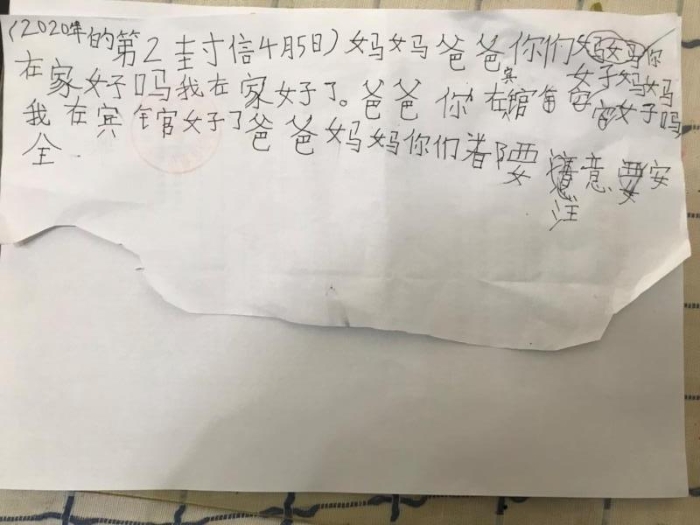 (2020年的第2封信4月5日)妈妈爸爸你们好妈妈你
在家好吗我在家好了。爸爸你在宾馆 好吗
我在宾馆好了爸爸妈妈你们都要注意要安
全